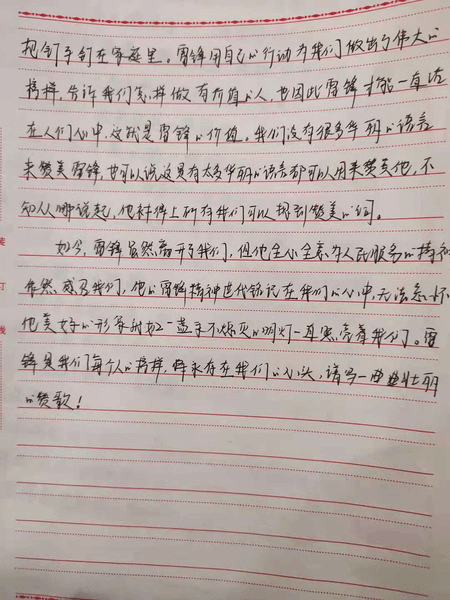 把钉子钉在家庭里。雷锋用自己的行动为我们做出了伟大的
榜样，告诉我们怎样做有价值的人，也因此雷锋才能一直活
在人们心中，这就是雷锋的价值。我们没有很多华丽的语言
来赞美雷锋，也可以说这是有太多华丽的语言都可以用来赞美他，不
知从哪说起，他衬得上所有我们可以想到赞美的词。
如今，雷锋虽然离开了我们，但他全心全意为人民服务的精神
依然感召我们，他的雷锋精神也代铭记在我们的心中，无法忘怀
他美好的形象附如一盏永不熄灭的明灯一直照亮着我们。雷
锋是我们每个人的榜样，将永存在我们的心头，谱写一曲壮丽
的赞歌！
装
订
线